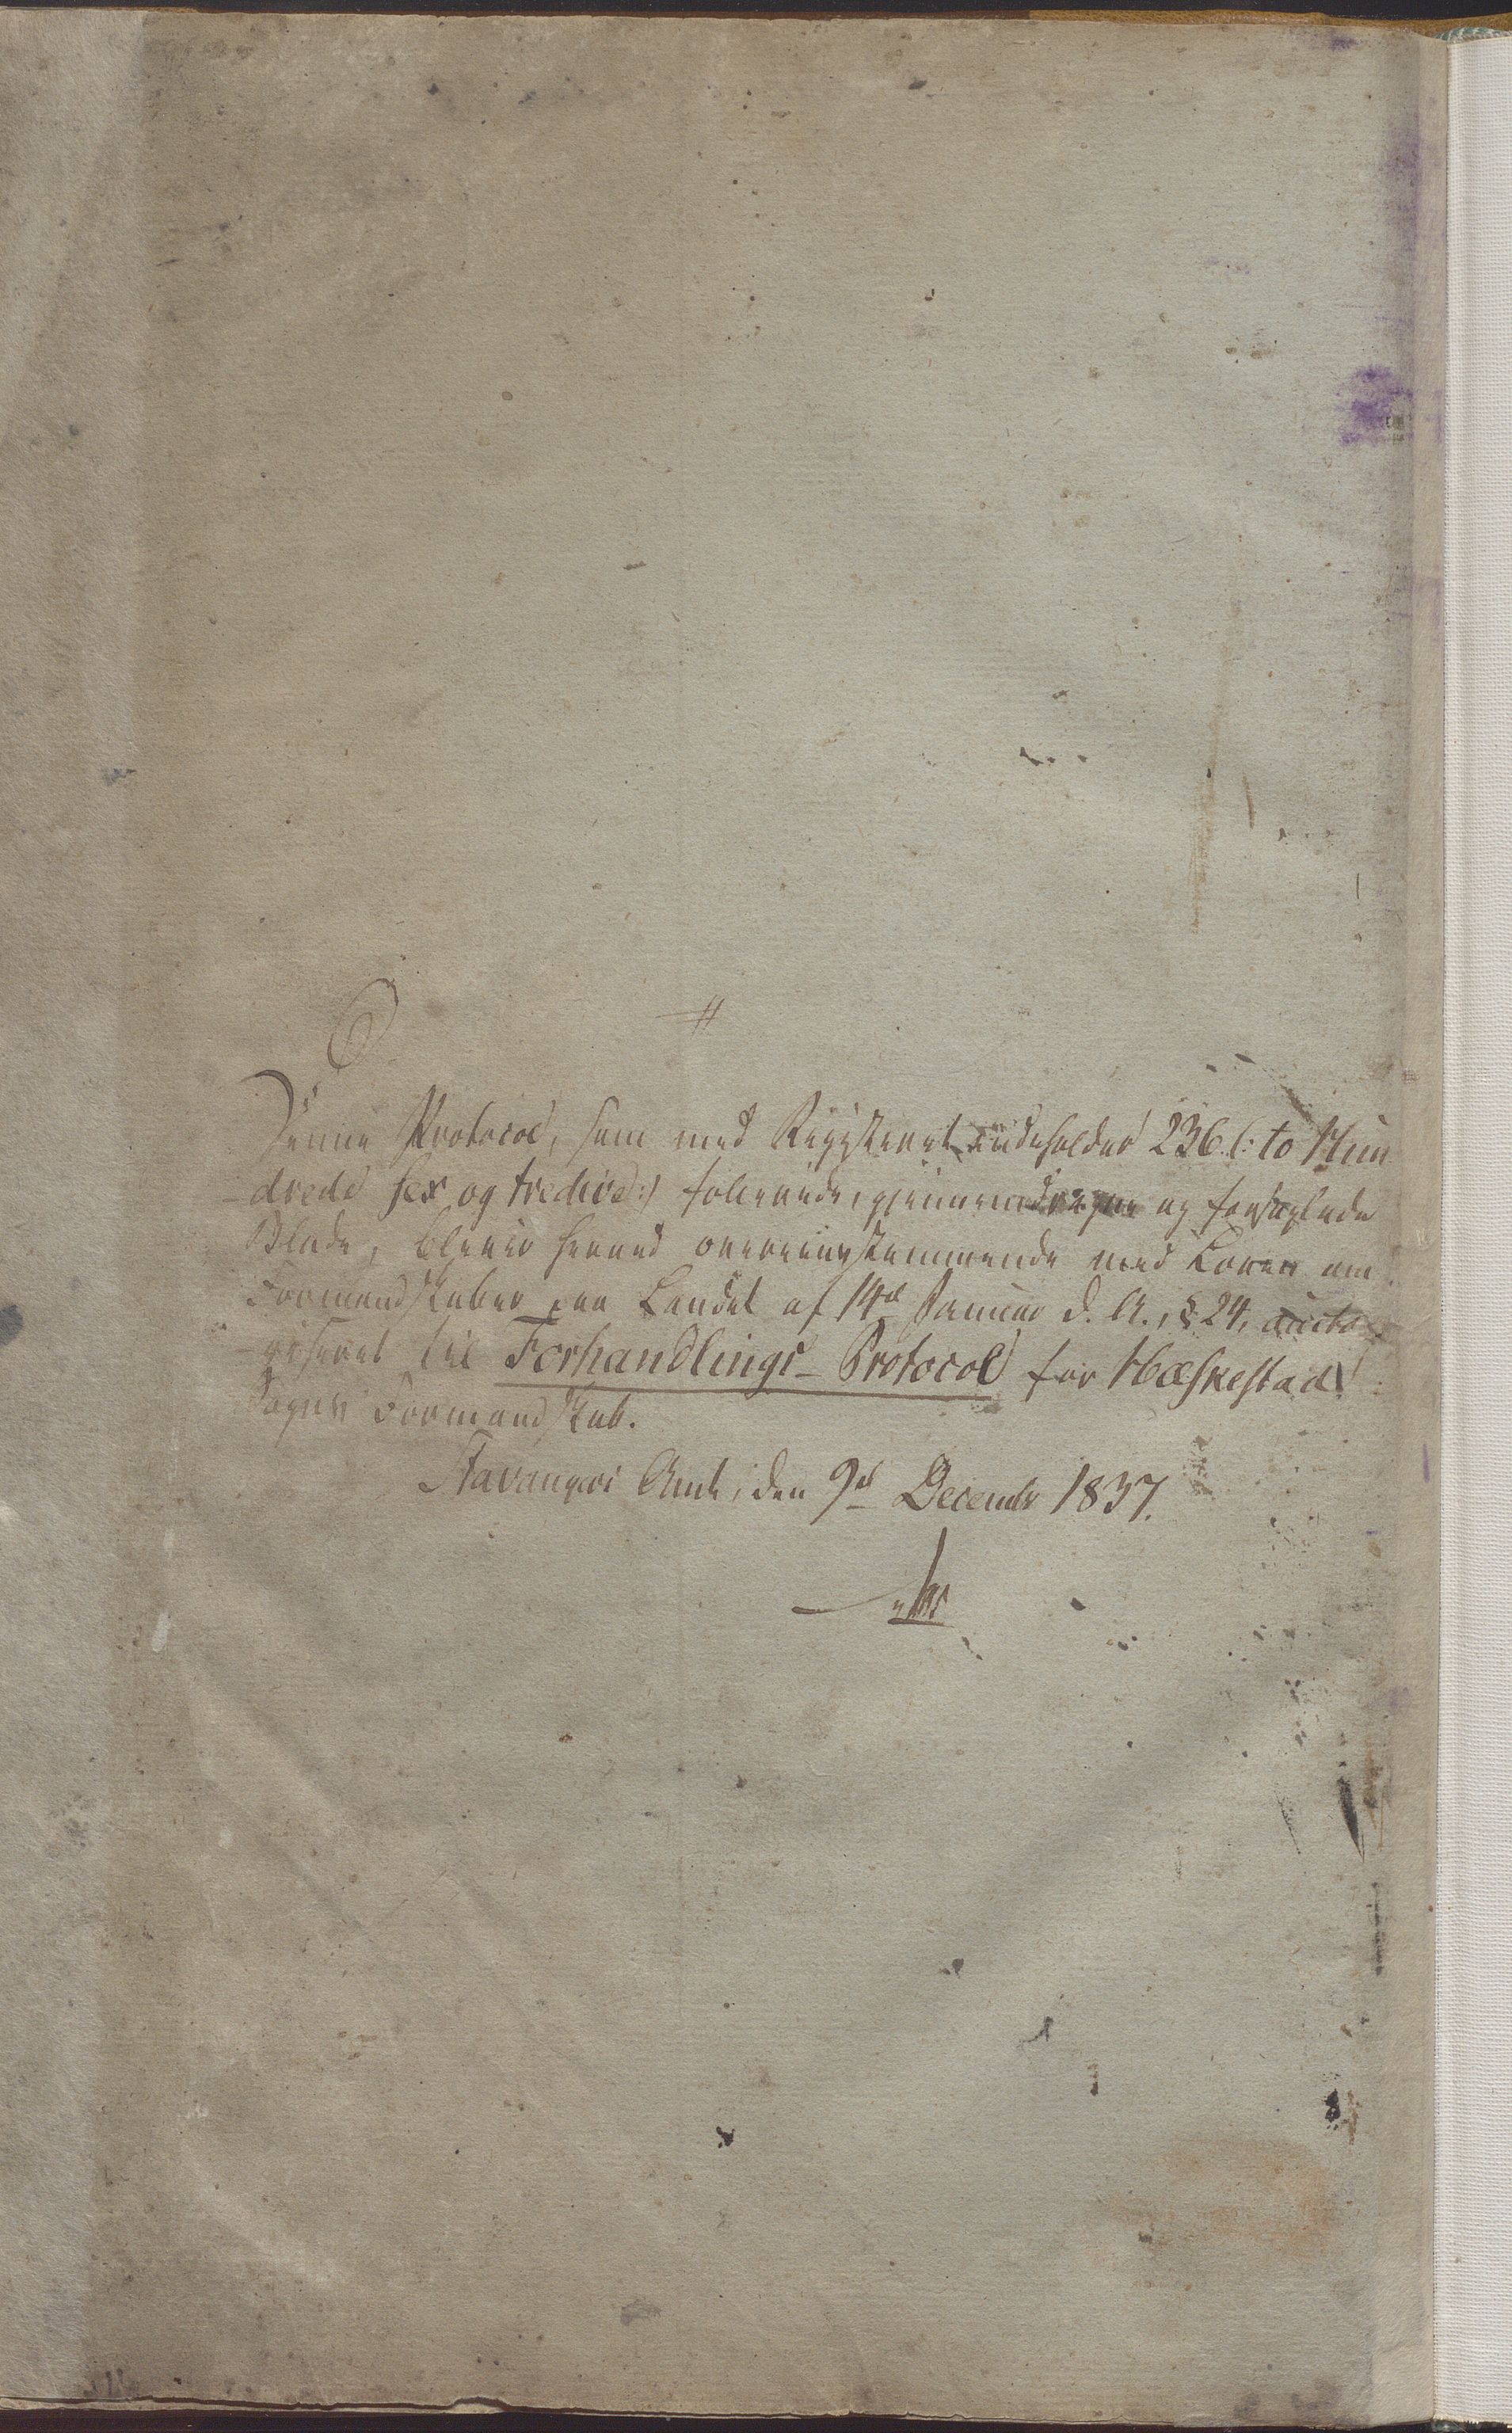 Denne Protocol, som med Registeret indeholder 236 (: to Hun
-drede sex og tredive :) folierede, gjennemdragne og forseglede
Blade, bliver herved overeensstemmende med Loven om
Formandskaber paa Landet af 14de Januar d. A., § 24, aucto
-riseret til Forhandlings-Protocol for Hæskestad
Sogns Formandskab.
Stavanger Amt, den 9de Decembr 1837.